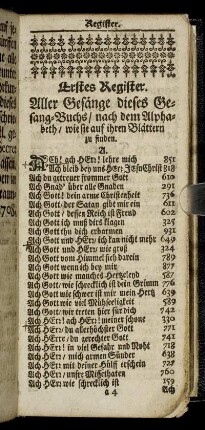 Register.
Erstes Register.
Aller Gesänge dieses Ge-
sang-Buchs/ nach dem Alpha-
beth/ wie sie auf ihren Blättern
zu finden.
A.
ACh! ach HErr! lehre mich 851
Ach bleib bey uns HErr JEsu Christ 818
Ach du getreuer frommer Gott 610
Ach Gnad' über alle Gnaden 291
Ach Gott! dein arme Christenheit 736
Ach Gott! der Satan gibt mir ein 611
Ach Gott! dessen Reich ist Freud 602
Ach Gott ich muß dirs klagen 325
Ach Gott thu dich erbarmen 931
Ach Gott und HErr, ich kan nicht mehr 649
Ach Gott und HErr wie groß 324
Ach Gott vom Himmel sieh darein 789
Ach Gott wenn ich bey mir 877
Ach Gott wie manches Hertzeleyd 587
Ach Gott, wie schrecklich ist dein Grimm 776
Ach Gott wie schwer ist mir mein Hertz 639
Ach Gott wie viel Mühseeligkeit 589
Ach Gott, wir treten hier für dich 742
Ach HErr! ach HErr! meiner schone 330
Ach HErr du allerhöchster Gott 771
Ach HErre, du gerechter Gott 741
Ach HErr! in viel Gefahr und Noht 718
Ach HErr mich armen Sünder 638
Ach HErr mit deiner Hülff erschein 727
Ach HErr, unsre Missethaten 760
Ach HErr wie schrecklich ist 159
a 4 Ach